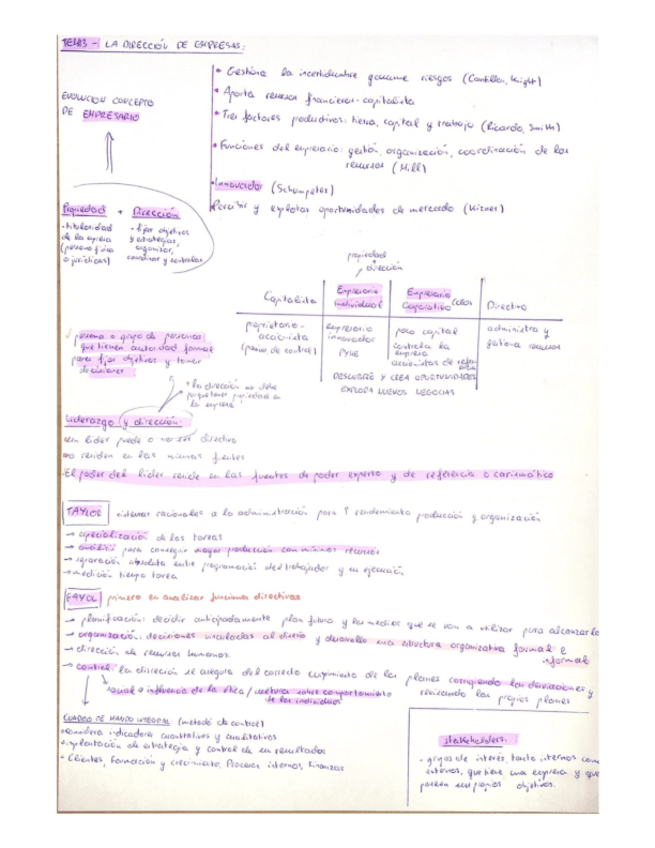 TEMA 3 - LA DIRECCIÓN DE EMPRESAS:
• Gestiona la incertidumbre asume riesgos (Cantillon, Knight)
• Aporta recursos financieros - capitalista
• Tres factores productivos: tierra, capital y trabajo (Ricardo, Smith)
• Funciones del empresario: gestión, organización, coordinación de los
recursos (Mill)
• Innovador (Schumpeter)
Percibir y explotar oportunidades de mercado (Kizner)
EVOLUCION CONCEPTO
DE EMPRESARIO
Propiedad + Dirección
- titularidad
de la empresa
(persona física
o jurídicas)
- fijar objetivos
y estrategias,
organizar,
coordinar y controlar
propiedad
y dirección
Capitalista
Empresario
individual
Empresario
Corporativo
Directivo
propietario -
accionista
(paquete de control)
empresario
innovador
PYME
poco capital
controla la
empresa
accionistas de referencia
administra y
gestiona recursos
DESCUBRE Y CREA OPORTUNIDADES
EXPLORA NUEVOS NEGOCIOS
persona o grupo de personas
que tienen autoridad formal
para fijar objetivos y tomar
decisiones
* la dirección no debe
porque tener propiedad en
la empresa
Liderazgo y dirección:
un líder puede o no ser directivo
no residen en las mismas fuentes
El poder del líder reside en las fuentes de poder experto y de referencia o carismático
TAYLOR sistemas racionales a la administración para ↑ rendimiento producción y organización
→ especialización de las tareas
→ análisis para conseguir mayor producción con mínimos recursos
→ separación absoluta entre programación del trabajador y su ejecución
→ medición tiempo tarea
FAYOL primero en analizar funciones directivas
→ planificación: decidir anticipadamente plan futuro y los medios que se van a utilizar para alcanzarlo
→ organización: decisiones vinculadas al diseño y desarrollo una estructura organizativa formal e
informal
→ dirección de recursos humanos.
→ control: la dirección se asegura del correcto cumplimiento de los planes corrigiendo las desviaciones y
revisando los propios planes
social → influencia de la ética / cultura sobre comportamiento
de los individuos
CUADRO DE MANDO INTEGRAL (método de control)
• considera indicadores cuantitativos y cualitativos
• explotación de estrategia y control de sus resultados
• Clientes, Formación y crecimiento, Procesos internos, Finanzas
stakeholders:
- grupos de interés, tanto internos como
externos, que tiene una empresa y que
poseen sus propios objetivos.